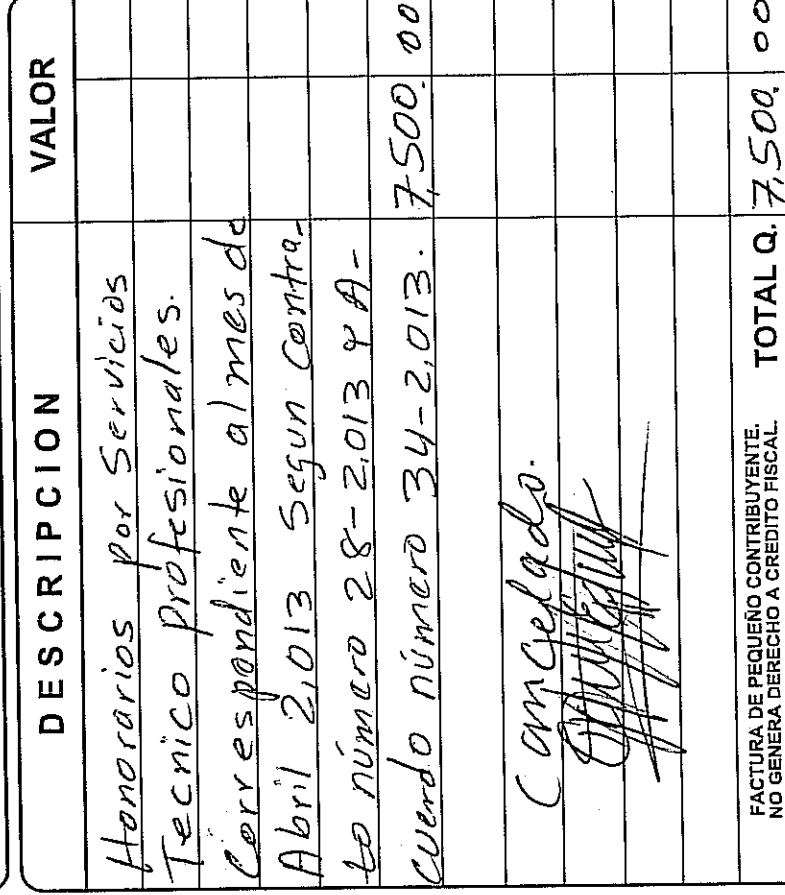 DESCRIPCION VALOR
Honorarios Por Servicios
Tecnico profesionales.
Correspondiente al mes de
Abril 2,013 Segun Contra-
to número 28-2,013 y A-
cuerdo número 34-2,013. 7,500. 00
Cancelado.
FACTURA DE PEQUEÑO CONTRIBUYENTE.
NO GENERA DERECHO A CREDITO FISCAL.
TOTAL Q. 7,500. 00